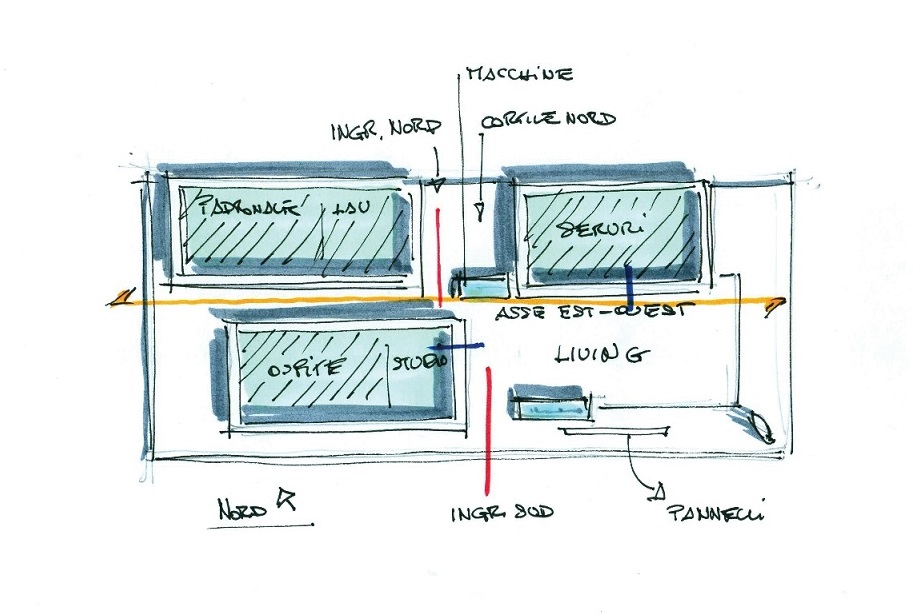 MACCHINE
INGR. NORD
CORTILE NORD
PADRONALE LAV
SERVIZI
ASSE EST-OVEST
OSPITE STUDIO
LIVING
NORD
INGR. SUD
PANNELLI